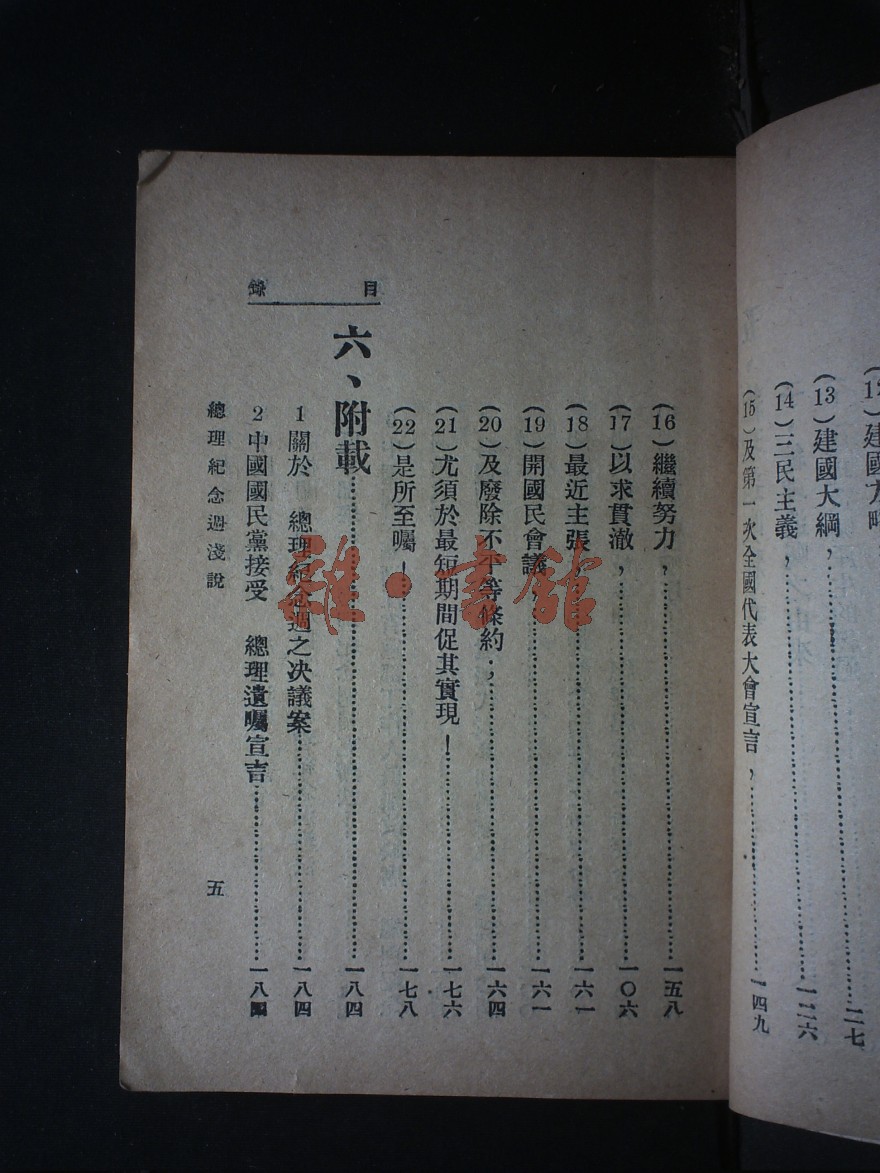 (13)建國大綱，……二七
(14)三民主義，……一三六
(15)及第一次全國代表大會宣言，……一四九
目錄
(16)繼續努力，……一五八
(17)以求貫澈，……一〇六
(18)最近主張，……一六一
(19)開國民會議，……一六一
(20)及廢除不平等條約，……一六四
(21)尤須於最短期間促其實現！……一七六
(22)是所至囑！……一七八
六、附載……一八四
1 關於 總理紀念週之决議案……一八四
2 中國國民黨接受 總理遺囑宣言……一八四
總理紀念週淺說
五
雜·書館